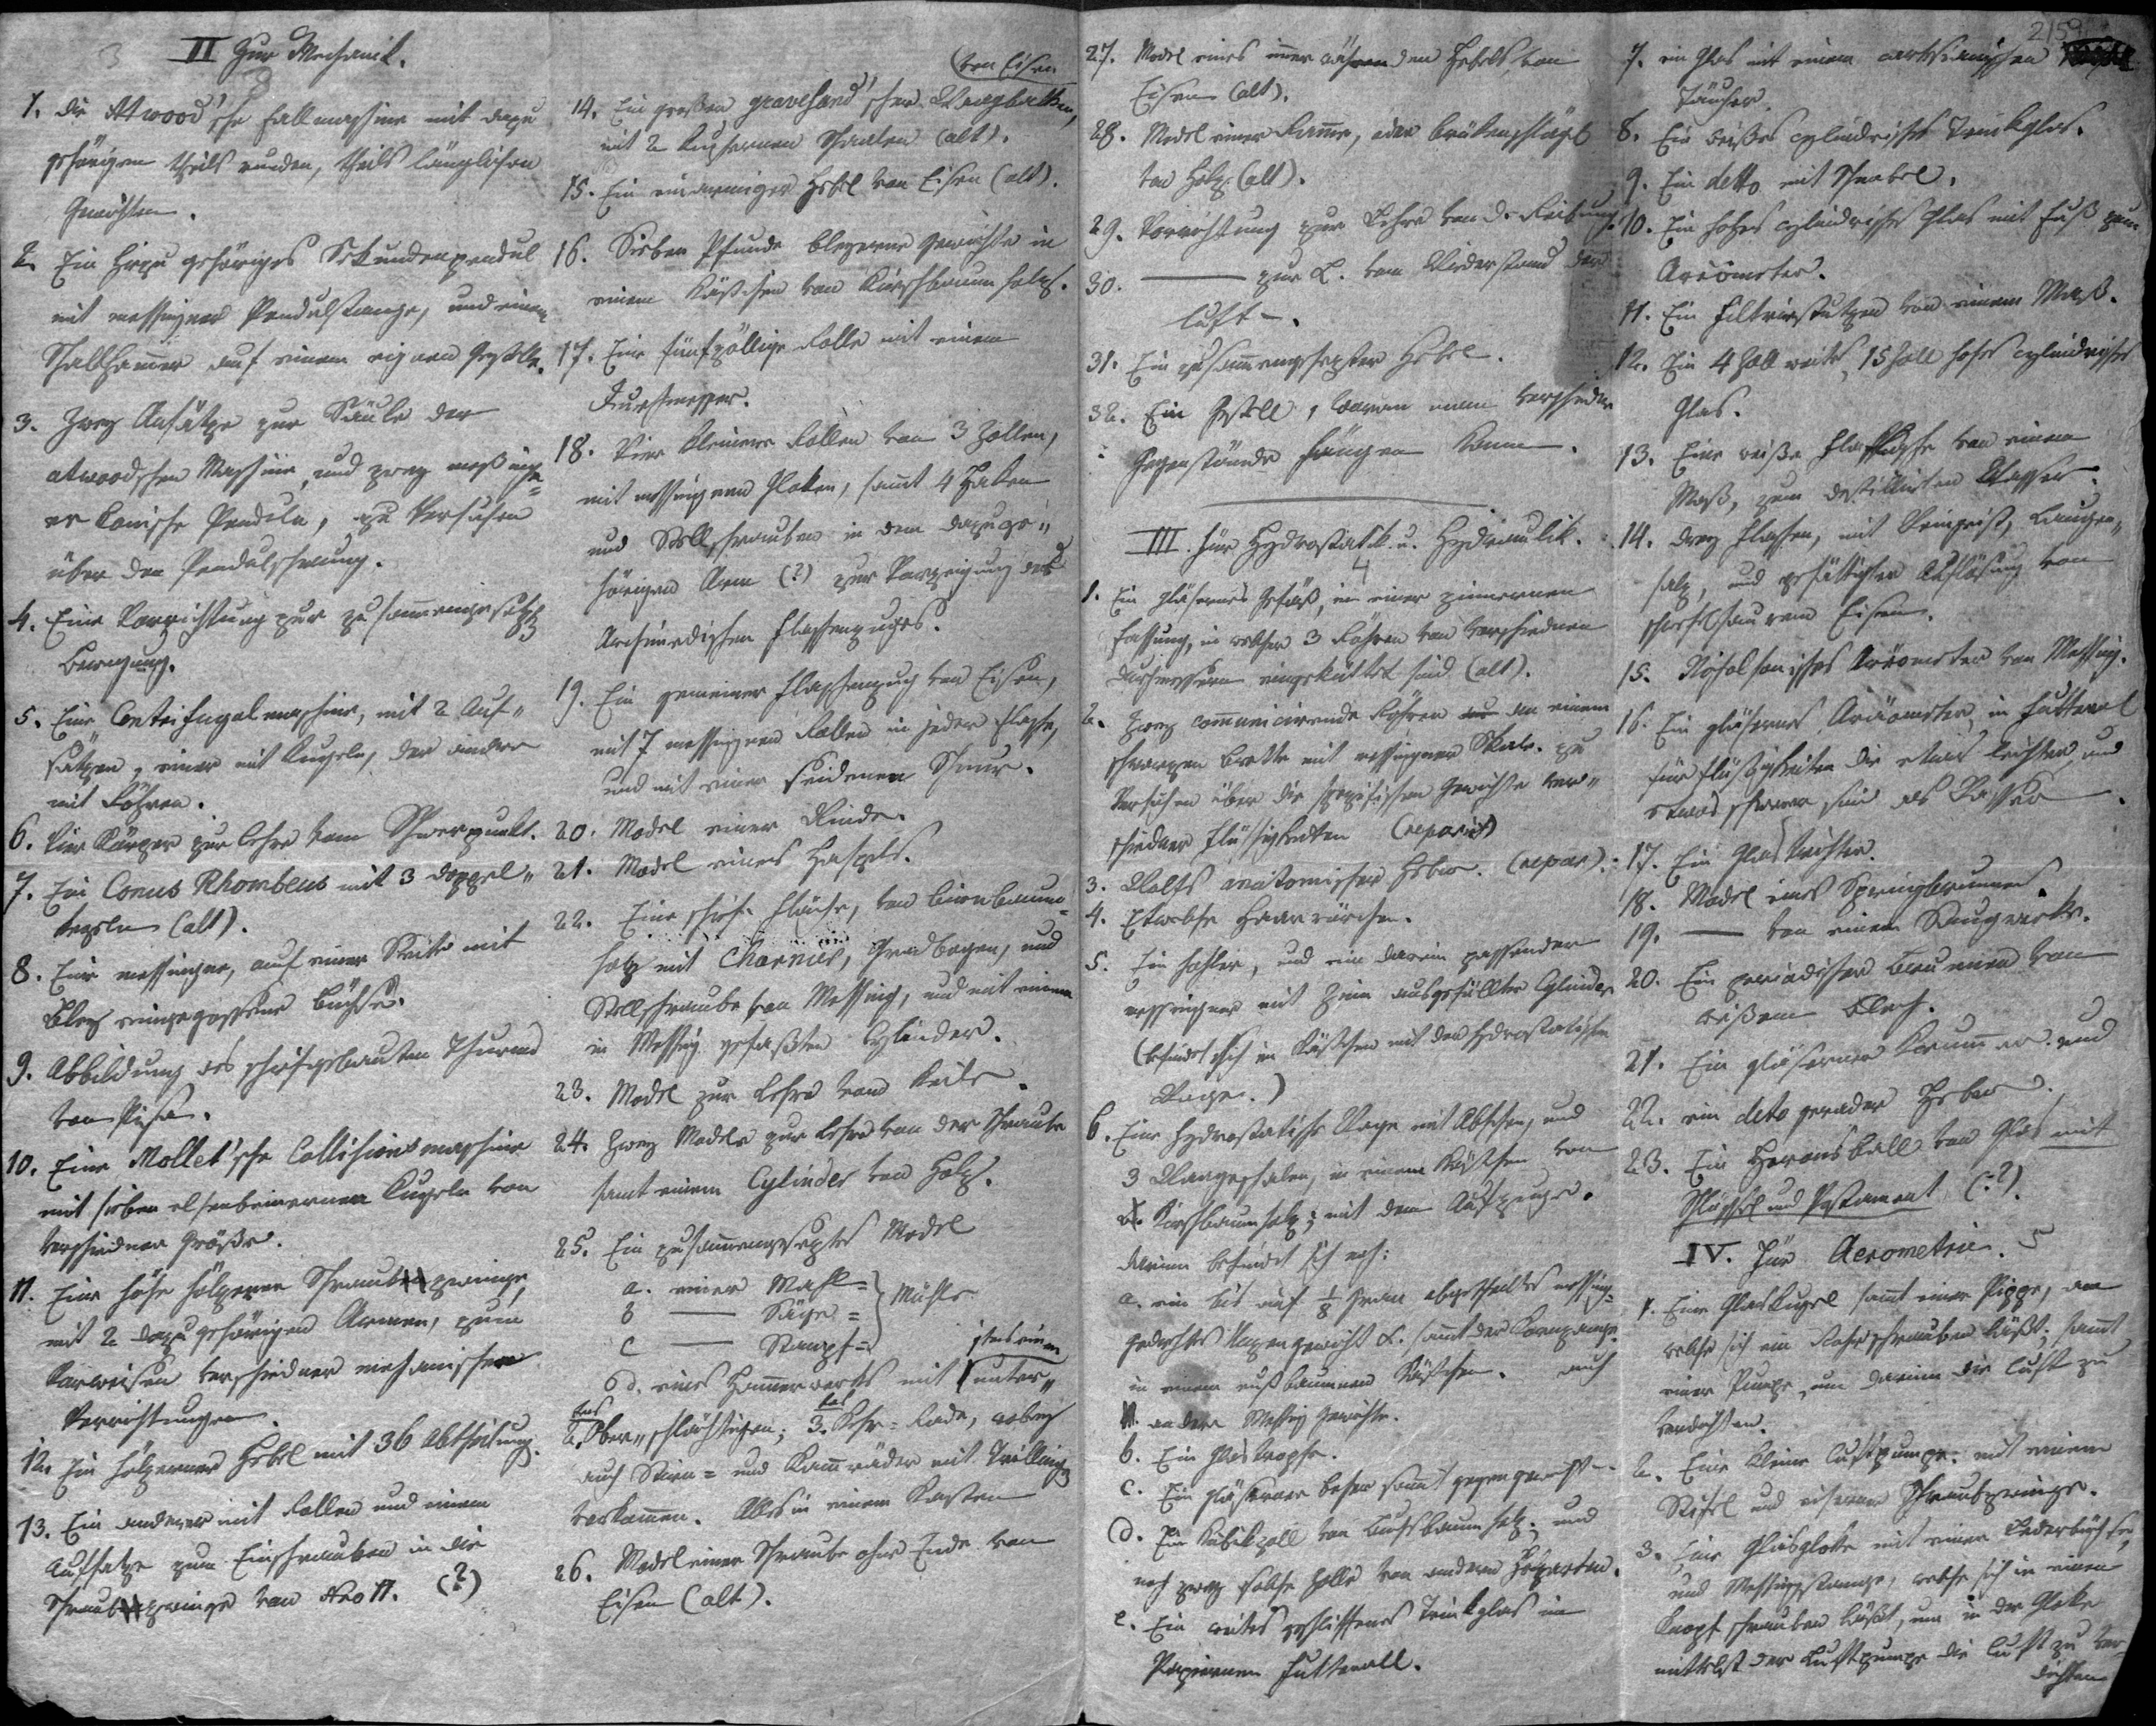 II Zur Mechanik.
1. Die Atwood'sche Fallmaschine mit dazu
gehörigen theils runden, theils länglichen
Gewichten.
2. Ein hiezu gehöriges Sekundenpendul
mit messingner Pendulstange, und einem
Schallhammer auf einem eignen Gestelle.
3. Zwey Aufsätze zur Säule der
atwoodschen Maschine, und zwey messinge=
ne konische Pendeln, zu Versuchen
über den Pendulschwung.
4. Eine Vorrichtung zur zusammengesetzten
Bewegung.
5. Eine Centrifugalmaschine, mit 2 Auf„
sätzen, einer mit Kugeln, der andere
mit Röhren.
6. Vier Körper zur Lehre vom Schwerpunkt.
7. Ein Conus Rhombeus mit 3 Doppel„
kegeln (alt).
8. Eine messingne, auf einer Seite mit
Bley eingegossene Büchse.
9. Abbildung des schiefgebauten Thurms
von Pisa.
10. Eine Mollet'sche Collisionsmaschine
mit sieben elfenbeinernen Kugeln von
verschiedner Größe.
11. Eine hohe hölzerne Schraubzwinge,
mit 2 dazu gehörigen Armen, zum
Vorweisen verschiedner mechanischen
Verrichtungen.
12. Ein hölzerner Hebel mit 36 Abtheilung.
13. Ein anderer mit Rollen und einem
Aufsatze zum Einschrauben in die
Schraubzwinge von Nro 11. (?)
von Eisen
14. Ein großer gravesand'scher Waagbalken,
mit 2 kupfernen Schaalen (alt).
15. Ein einarmiger Hebel von Eisen (alt).
16. Sieben Pfunde bleyerne Gewichte in
einem Kästchen von Kirschbaumholz.
17. Eine fünfzöllige Rolle mit einem
Durchmesser.
18. Vier kleinere Rollen von 3 Zollen,
mit messingenen Gloken, sammt 4 Haken
und Stellschrauben in dem dazuge„
hörigen Arm (?) zur Vorzeigung des
Archimedischen Flaschenzuges.
19. Ein gemeiner Flaschenzug von Eisen,
mit 7 messingnen Rollen in jeder Flasche,
und mit einer seidenen Schnur.
20. Model einer Winde.
21. Model eines Haspels.
22. Eine schiefe Fläche, von Birnbaum=
holz mit Charnier, Gradbogen, und
Stellschraube von Messing, und mit einem
in Messing gefaßten Cylinder.
23. Model zur Lehre vom Keile.
24. Zwey Modele zur Lehre von der Schraube
samt einem Cylinder von Holz.
25. Ein zusammengesetztes Model
a. einer Mahl=
b — Säge= Mühle
c — Stampf=
d. eines Hammerwerks mit 1 unter„
2. Ober„schlächtigen; 3. Kehr=Rade, wobey
auch Stirn= und Kammräder mit Trilling
vorkommen. Alles in einem Kasten
26. Model einer Schraube ohne Ende von
Eisen (alt).
27. Model eines immerwährenden Hebels von
Eisen (alt).
28. Model einer Ramme, oder Brükenschlägel
von Holz (alt).
29. Vorrichtung zur Lehre von d. Reibung.
30. — zur L. vom Widerstand der
Luft.
31. Ein zusammengesetzter Hebel.
32. Ein Gestell, woran man verschiedne
Gegenstände hängen kann.
III. Zur Hydrostatik u. Hydraulik.
4
1. Ein gläsernes Gefäß, in einer zinnernen
Fassung, in welcher 3 Röhren von verschiednen
Durchmessern eingeküttet sind (alt).
2. Zwey communicirende Röhren an einem
schwarzen Brette mit messingner Skale. zu
Versuchen über die spezifischen Gewichte ver„
schiedner Flüssigkeiten (reparirt)
3. Wolfs anatomischer Heber. (repar).
4. Etwelche Haarrörchen.
5. Ein hohler, und ein darein passender
messingner mit Zinn ausgefüllter Cylinder
(befindet sich im Kästchen mit der hydrostatischen
Wage.)
6. Eine hydrostatische Wage mit Absehen, und
3 Waageschalen, in einem Kästchen von
Kirschbaumholz; mit dem Aufzuge.
darinn befindet sich noch:
a. ein bis auf 1/8 Gran abgetheiltes messing=
gedrehtes Unzengewicht sammt der Kornzange
in einem nußbaumnen Kästchen. auch
11 andere Messing Gewichte.
b. Ein Glastropfe.
c. Ein gläserner Becher sammt Gegengewicht
d. Ein Kubikzoll von Buchsbaumholz; und
noch zwey solche Zolle von andern Holzarten.
e. Ein weites geschliffenes Trinkglas im
Papiernen Futterall.
2159
7. ein Glas mit einem cartesianischen
Täucher.
8. Ein weißes cylindrisches Trinkglas.
9. Ein detto mit Schnabel.
10. Ein hohes cylindrisches Glas mit Fuß zum
Aräometer.
11. Ein Filtrirstutzen von einem Maß.
12. Ein 4 Zoll weites, 15 Zoll hohes cylindrisches
Glas.
13. Eine weiße Flasche von einem
Maß, zum destillirten Wasser.
14. drey Flaschen, mit Weingeist, Laugen„
salz, und gesättigter Auflösung von
schwefelsaurem Eisen.
15. Nicholsonisches Aräometer von Messing.
16. Ein gläsernes Aräometer in Futteral
für Flüßigkeiten die etwas leichter, und
etwas schwerer sind als Wasser.
17. Ein Glastrichter.
18. Model eines Springbrunnens.
19. — von einem Saugwerke.
20. Ein periodischer Brunnen von
weißem Blech.
21. Ein gläserner krummer und
22. ein deto gerader Heber.
23. Ein Heronsball von Glas mit
Schlüssel und Postament (?).
IV. Zur Aerometrie. 5
1. Eine Glaskugel sammt einer Pippe, an
welche sich ein Rohr schrauben läßt; sammt
einer Pumpe, um darinn die Luft zu
verdichten.
2. Eine kleine Luftpumpe. mit einem
Stifel und eiserner Schraubzwinge.
3. Eine Glasgloke mit einer Lederbüchse,
und Messingstange, welche sich in einen
Knopf schrauben läßt, um in der Gloke
mittelst der Luftpumpe die Luft zu ver=
dichten